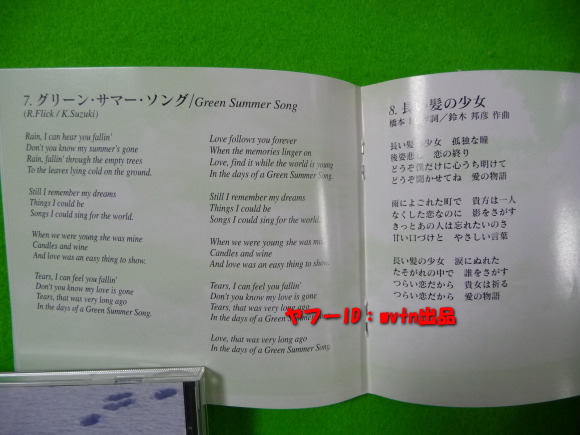 7. グリーン・サマー・ソング/Green Summer Song
(R.Flick / K.Suzuki)
Rain, I can hear you fallin'
Don't you know my summer's gone
Rain, fallin' through the empty trees
To the leaves lying cold on the ground.
Still I remember my dreams
Things I could be
Songs I could sing for the world.
When we were young she was mine
Candles and wine
And love was an easy thing to show.
Tears, I can feel you fallin'
Don't you know my love is gone
Tears, that was very long ago
In the days of a Green Summer Song.
Love follows you forever
When the memories linger on
Love, find it while the world is young
In the days of a Green Summer Song.
Still I remember my dreams
Things I could be
Songs I could sing for the world.
When we were young she was mine
Candles and wine
And love was an easy thing to show.
Tears, I can feel you fallin'
Don't you know my love is gone
Tears, that was very long ago
In the days of a Green Summer Song.
Love, that was very long ago
In the days of a Green Summer Song.
8. 長い髪の少女
橋本 作詞／鈴木 邦彦 作曲
長い髪の少女 孤独な瞳
後姿悲し 恋の終り
どうぞ僕だけに心うち明けて
どうぞ聞かせてね 愛の物語
雨によごれた町で 貴方は一人
なくした恋なのに 影をさがす
きっとあの人は忘れたいのさ
甘い口づけと やさしい言葉
長い髪の少女 涙にぬれた
たそがれの中で 誰をさがす
つらい恋だから 貴女は祈る
つらい恋だから 愛の物語
ヤフーID：mvtn出品